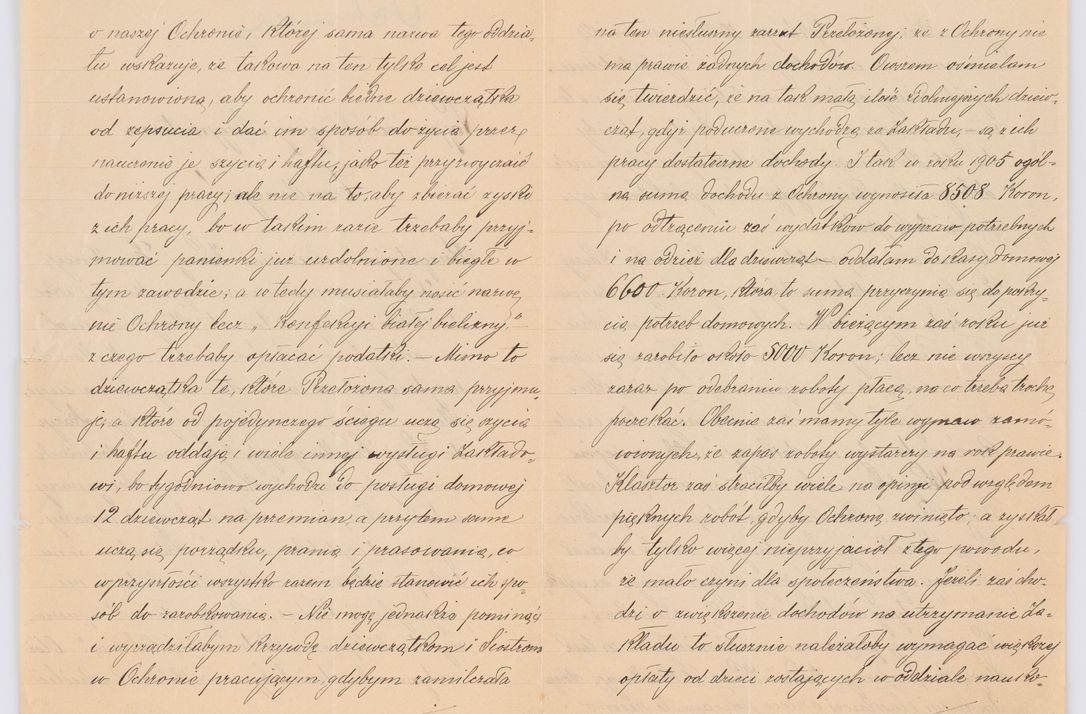 o naszej Ochronie, której sama nazwa tego oddzia-
łu wskazuje, że takowa na ten tylko cel jest
ustanowioną, aby ochronić biedne dziewczątka
od zepsucia i dać im sposób do życia przez
nauczenie je szycia i haftu, jako też przyzwyczaić
do niższej pracy; ale nie na to, aby zbierać zyski
z ich pracy, bo w takim razie trzebaby przyj-
mować panienki już uzdolnione i biegłe w
tym zawodzie; a wtedy musiałaby nosić nazwę
nie Ochrony lecz „Konfekcyi białej bielizny."
z czego trzebaby opłacać podatki. — Mimo to
dziewczątka te, które Przełożona sama przyjmu-
je, a które od pojedynczego ściegu uczą się szycia
i haftu oddają i wiele innej wysługi Zakłado-
wi, bo tygodniowo wychodzi do posługi domowej
12 dziewcząt na przemian, a przytem same
uczą się porządku, prania i prasowania, co
w przyszłości wszystko razem będzie stanowić ich spo-
sób do zarobkowania. — Nie mogę jednakże pominąć
i wyrządziłabym krzywdę dziewczątkom i Siostrom
w Ochronie pracującym, gdybym zamilczała
na ten niesłuszny zarzut Przełożonej, że z Ochrony nie
ma prawie żadnych dochodów. Owszem ośmielam
się twierdzić, że na tak małą ilość zdolniejszych dziew-
cząt, gdyż poduczone wychodzą ze Zakładu, — są z ich
pracy dostateczne dochody. I tak w roku 1905 ogól-
na suma dochodu z Ochrony wynosiła 8508 Koron,
po odtrąceniu zaś wydatków do wypraw potrzebnych
i na odzież dla dziewcząt — oddałam do kasy domowej
6600 Koron, która to suma przyczynia się do pokry-
cia potrzeb domowych. W bieżącym zaś roku już
się zarobiło około 5000 Koron; lecz nie wszyscy
zaraz po odebraniu roboty płacą, na co trzeba trochę
poczekać. Obecnie zaś mamy tyle wypraw zamó-
wionych, że zapas roboty wystarczy na rok prawie.
Klasztor zaś straciłby wiele na opinji pod względem
pięknych robót, gdyby Ochronę zwinięto; a zyskał
by tylko więcej nieprzyjaciół z tego powodu,
że mało czyni dla społeczeństwa. Jeżeli zaś cho-
dzi o zwiększenie dochodów na utrzymanie Za-
kładu to słusznie należałoby wymagać większej
opłaty od dzieci zostających w oddziale nauko-